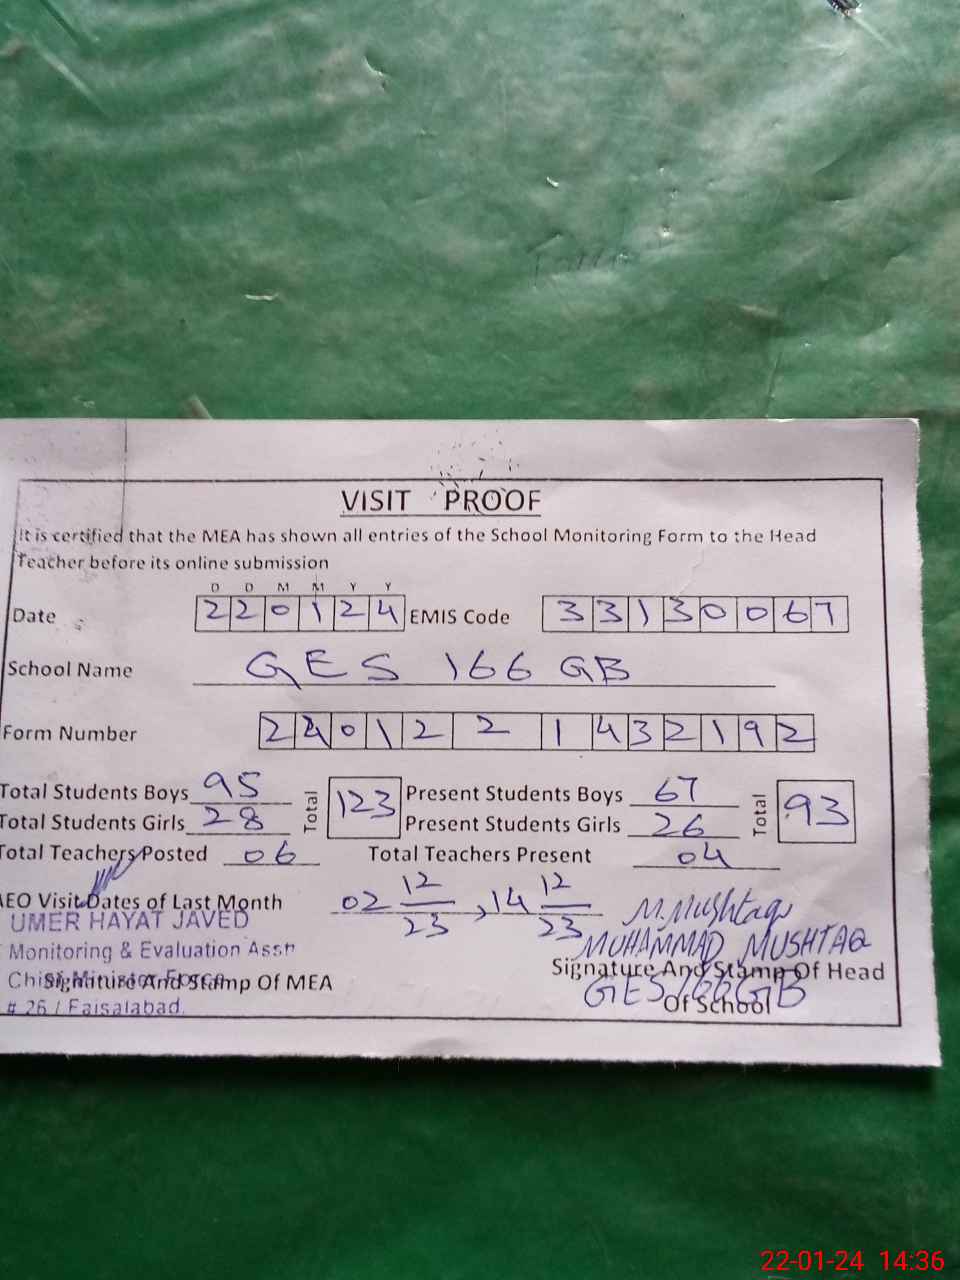 VISIT PROOF
It is certified that the MEA has shown all entries of the School Monitoring Form to the Head
Teacher before its online submission
D D M M Y Y
Date 2 2 0 1 2 4 EMIS Code 3 3 1 3 0 0 6 7
School Name GES 166 GB
Form Number 2 2 0 1 2 2 1 4 3 2 1 9 2
Total Students Boys 95 Total 123 Present Students Boys 67 Total 93
Total Students Girls 28 Present Students Girls 26
Total Teachers Posted 06 Total Teachers Present 04
AEO Visit Dates of Last Month 02 12/23, 14 12/23 M.Mushtaq
UMER HAYAT JAVED MUHAMMAD MUSHTAQ
Monitoring & Evaluation Asstt
Chief Minister Force
Signature And Stamp Of MEA Signature And Stamp Of Head
GES 166 GB
# 26 / Faisalabad. Of School
22-01-24 14:36